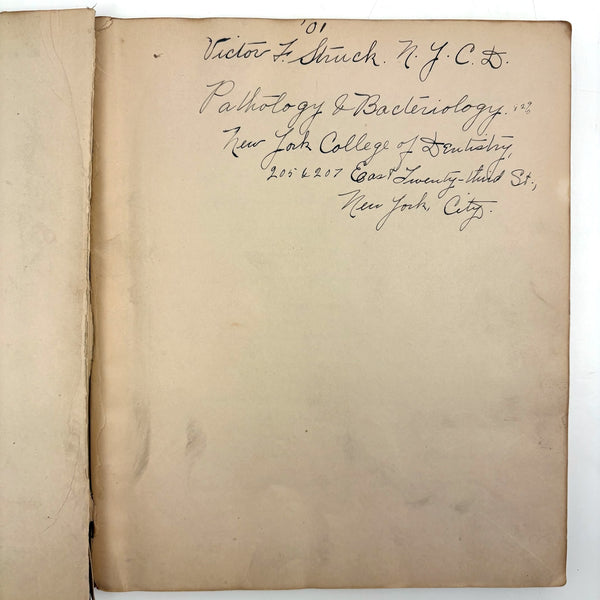 '01
Victor F. Struck. N. Y. C. D.
Pathology & Bacteriology.
New York College of Dentistry,
205 & 207 East Twenty-third St.,
New York, City.